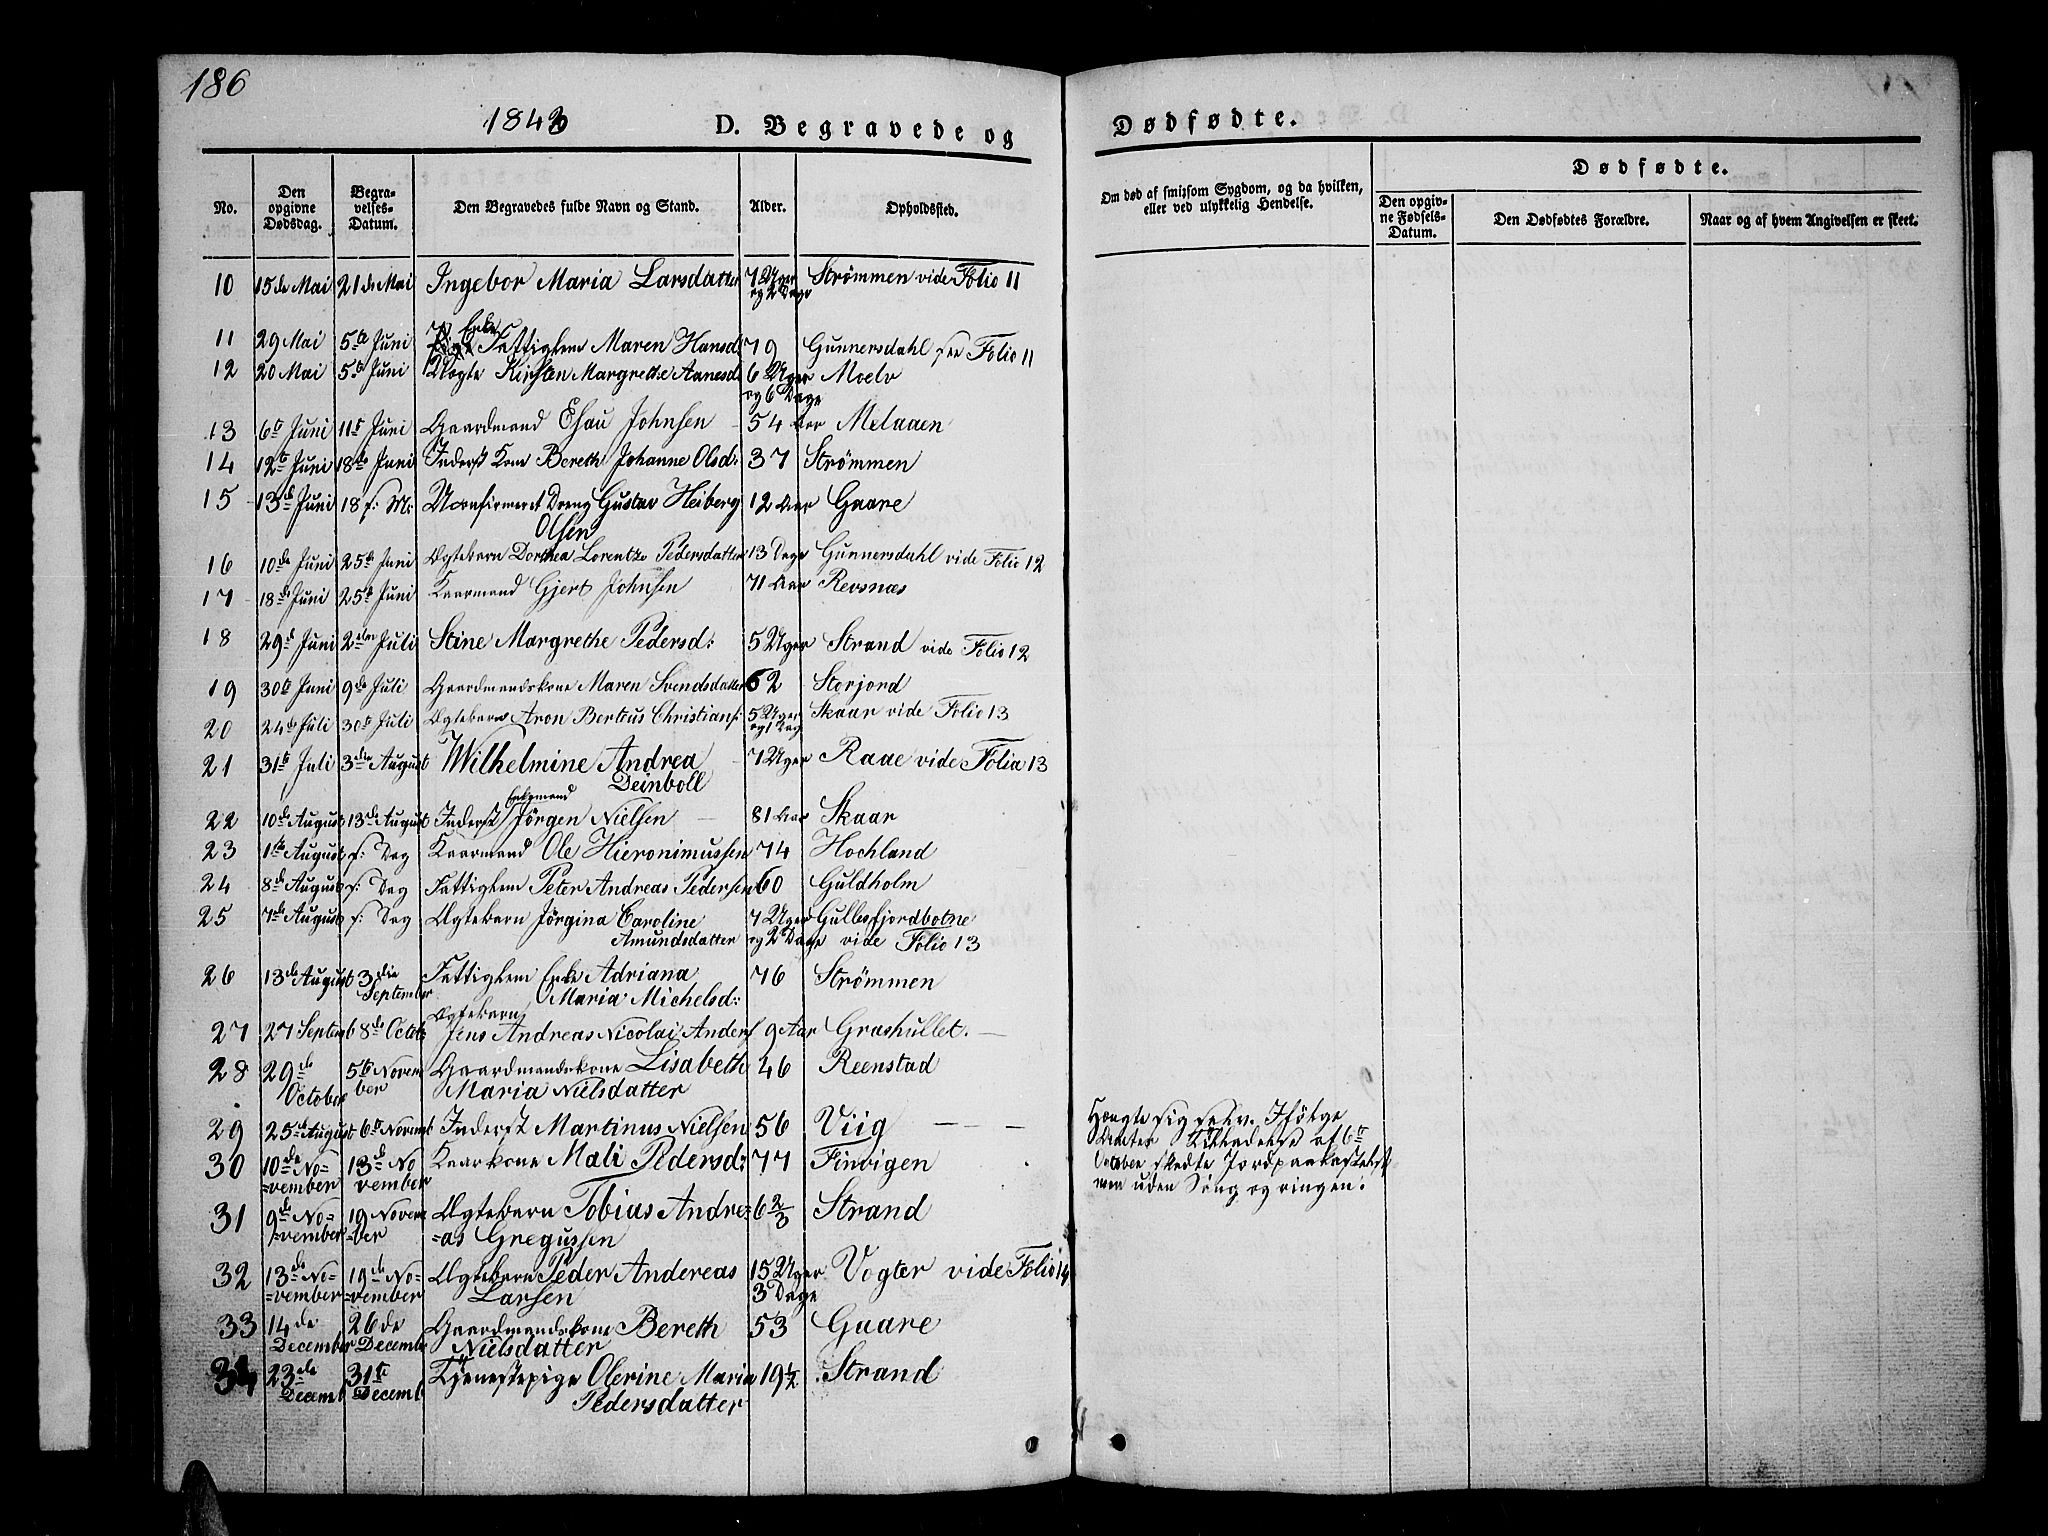 186
1843 D. Begravede og Dødfødte.
No. Den opgivne Dødsdag. Begravelses-Datum. Den Begravedes fulde Navn og Stand. Alder. Opholdssted. Om død af smitsom Sygdom, og da hvilken, eller ved ulykkelig Hendelse. Dødfødte.
Den opgivne Fødsels-Datum. Den Dødfødtes Forældre. Naar og af hvem Angivelsen er skeet.
10 15de Mai 21de Mai Ingebor Maria Larsdatter 7 Uger og 2 Dage Strømmen vide Folio 11
11 29 Mai 5te Juni Enke Fattiglem Maren Hansd: 79 Gunnersdahl see Folio 11
12 20 Mai 5te Juni Ægte Kirsten Margrethe Aanesd: 6 Uger og 6 Dage Moelv
13 6te Juni 11te Juni Gaardmand Esau Johnsen 54 Aar Melaaen
14 12te Juni 18de Juni Inderst Kone Bereth Johanne Olsd: 37 Strømmen
15 13de Juni 18 f: M: Uconfirmeret Dreng Gustav Heiberg
Olsen 12 Aar Gaare
16 10de Juni 25de Juni Ægtebarn Dorthea Lorentze Pedersdatter 13 Dage Gunnersdahl vide Folio 12
17 18de Juni 25de Juni Kaarmand Gjert Johnsen 71 Aar Revsnæs
18 29de Juni 2den Juli Stine Margrethe Pedersd: 5 Uger Strand vide Folio 12
19 30te Juni 9de Juli Gaardmandskone Maren Svendsdatter 62 Storjord
20 24de Juli 30te Juli Ægtebarn Aron Berteus Christians: 5 Uger og 1 Dag Skaar vide Folio 13
21 31te Juli 3die August Wilhelmine Andrea
Deinboll 7 Uger Raae vide Folia 13
22 10de August 13de August Inderst Enkemand Jörgen Nielsen 81 Aar Skaar
23 1ste August f: Dag Kaarmand Ole Hieronimussen 74 Hochland
24 8de August f: Dag Fattiglem Peter Andreas Pedersen 60 Guldholm
25 7de August f: Dag Ægtebarn Jörgina Caroline
Amundsdatter 7 Uger og 2 Dage Gullesfjordbotne vide Folio 13
26 13de August 3die September Fattiglem Enke Adriana
Maria Michelsd: 76 Strømmen
27 27 Septemb 8de Octob: Ægtebarn
Jens Andreas Nicolai Anders 9 Aar Grashullet.
28 29de October 5te November Gaardmandskone Lisabeth
Maria Nielsdatter 46 Reenstad
29 25de August 6te Novemb Inderst Martinus Nielsen 56 Viig
Hængte sig selv. Ifölge
Amter Tilladelse af 6te
October skedte Jordpaakastelse
men uden Sang og ringen:
30 10de No=vember 13de November Kaarkone Mali Pedersd: 77 Finvigen
31 9de No=vember 19 Novem=ber Ægtebarn Tobias Andre=
=as Gregussen 6 2/3 Strand
32 13de No=vember 19de No=vember Ægtebarn Peder Andereas
Larsen 15 Uger 3 Dage Vogter vide Folio 14
33 14de December 26de December Gaardmandskone Bereth
Nielsdatter 53 Gaare
34 23de Decemb 31te Decemb Tjenestepige Olerine Maria
Pedersdatter 19 1/2 Strand